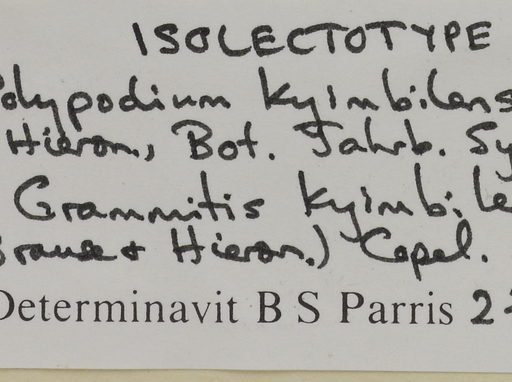 ISOLECTOTYPE
olypodium kyimbilens
Hieron., Bot. Jahrb. Sy
Grammitis kyimbile
rause & Hieron.) Copel.
Determinavit B S Parris 2